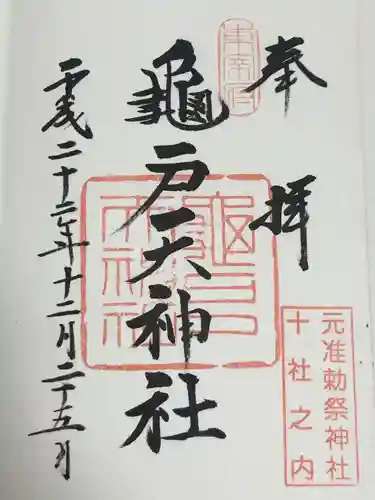 奉拝
東宰府
龜戸天神社
龜戸
天神社
平成二十二年十二月二十五日
元准勅祭神社
十社之内